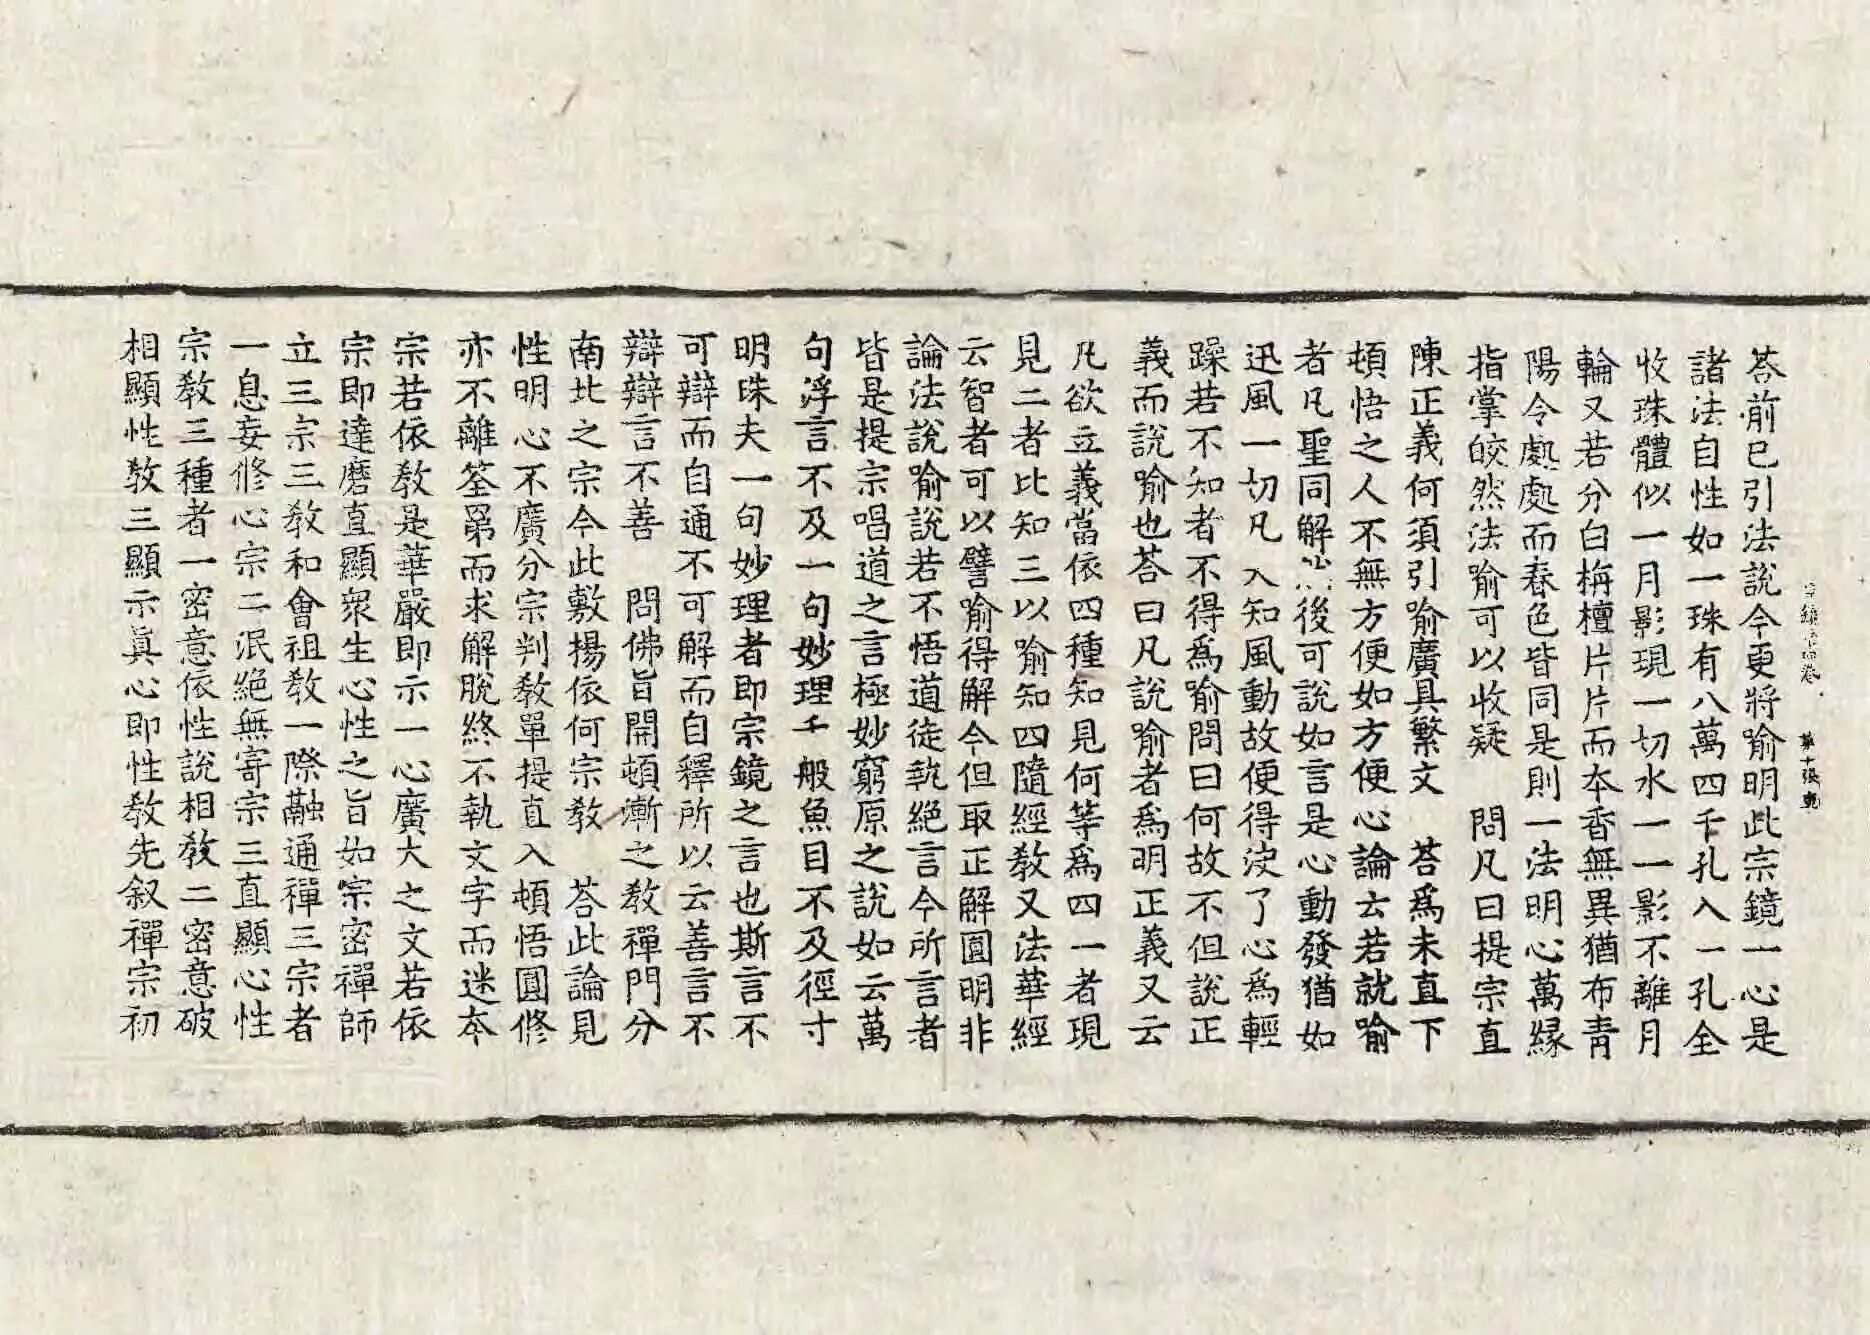 荅前已引法說今更將喻明此宗鏡一心是
諸法自性如一珠有八萬四千孔入一孔全
收珠體似一月影現一切水一一影不離月
輪又若分白栴檀片片而本香無異猶布青
陽令處處而春色皆同是則一法明心萬緣
指掌皎然法喻可以收疑　問凡曰提宗直
陳正義何須引喻廣具繁文　荅爲未直下
頓悟之人不無方便如方便心論云若就喻
者凡聖同解然後可說如言是心動發猶如
迅風一切凡人知風動故便得決了心爲輕
躁若不知者不得爲喻問曰何故不但說正
義而說喻也荅曰凡說喻者爲明正義又云
凡欲立義當依四種知見何等爲四一者現
見二者比知三以喻知四隨經教又法華經
云智者可以譬喻得解今但取正解圓明非
論法說喻說若不悟道徒執絕言今所言者
皆是提宗唱道之言極妙窮原之說如云萬
句浮言不及一句妙理千般魚目不及徑寸
明珠夫一句妙理者即宗鏡之言也斯言不
可辯而自通不可解而自釋所以云善言不
辯辯言不善　問佛旨開頓漸之教禪門分
南北之宗今此敷揚依何宗教　荅此論見
性明心不廣分宗判教單提直入頓悟圓修
亦不離筌罤而求解脫終不執文字而迷本
宗若依教是華嚴即示一心廣大之文若依
宗即達磨直顯衆生心性之旨如宗密禪師
立三宗三教和會祖教一際融通禪三宗者
一息妄修心宗二泯絕無寄宗三直顯心性
宗教三種者一密意依性說相教二密意破
相顯性教三顯示眞心即性教先叙禪宗初